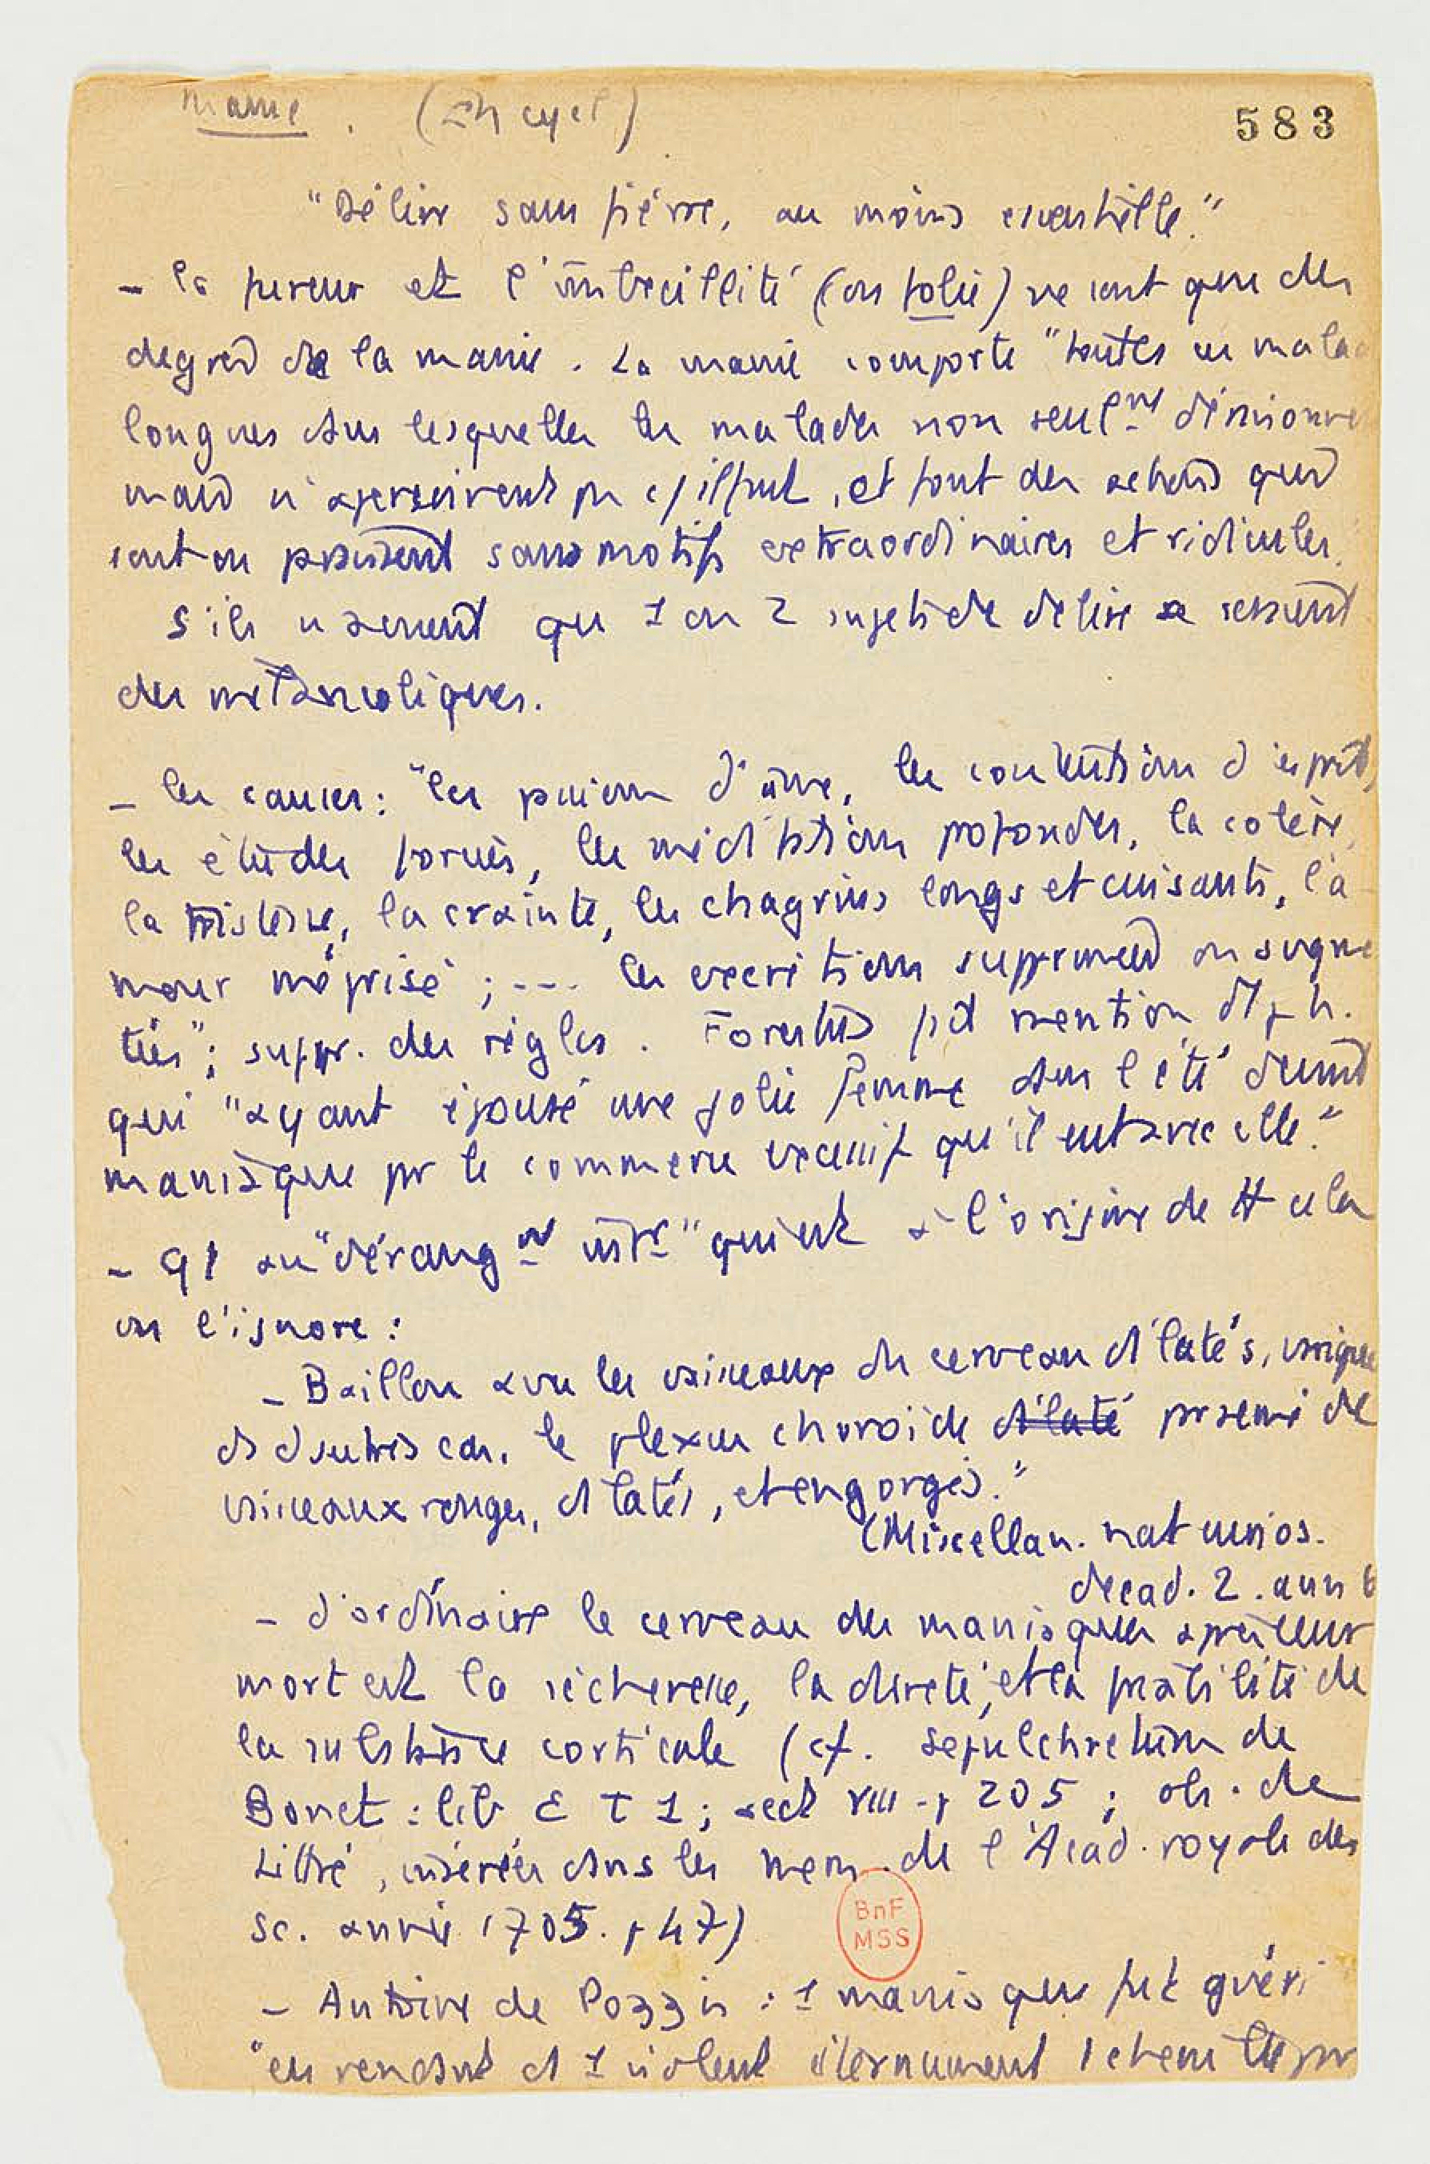 Manie. (Encycl)
583
"Délire sans fièvre, au moins essentielle."
- la fureur et l'imbécillité (ou folie) ne sont que des
degrés de la manie. La manie comporte "toutes ces mala
longues dans lesquelles les malades non seulnt déraisonne
mais n'aperçoivent pas c/ il faut, et font des actions qui
sont ou paraissent sans motifs extraordinaires et ridicules.
S'ils n'avaient qu 1 ou 2 sujets de délire
des mélancoliques.
- les causes: "les passions d'âme, les contentions d'esprit,
les études forcées, les méditations profondes, la colère,
la tristesse, la crainte, les chagrins longs et cuisants, l'a-
mour méprisé ; --- les excrétions supprimées ou augme
tées"; suppr. des règles. Forestus fait mention d'1 j. h.
qui "ayant épousé une jolie femme dans l'été devint
maniaque pr le commerce excessif qu'il eut avec elle."
- qt au "dérangnt intr" qui est à l'origine de tt cela
on l'ignore :
- Baillou a vu les vaisseaux du cerveau dilatés, variqueu
ds d'autres cas, le plexus choroïde dilaté parsemé de
vaisseaux rouges, dilatés, et engorgés."
(Miscellan. nat curios.
decad. 2. ann 6
- d'ordinaire le cerveau des maniaques après leur
mort est la sécheresse, la dureté, et la friabilité de
la substance corticale (cf. Sepulchretum de
Bonet : lib E T 1; sect VIII - p 205 ; obs. de
Littré, insérées dans les mem. de l'Acad. royale des
Sc. année 1705. p 47)
BnF
MSS
- Antoine de Pozzis : 1 maniaque fut guéri
"en rendant ds 1 violent éternuement 1 chenille par